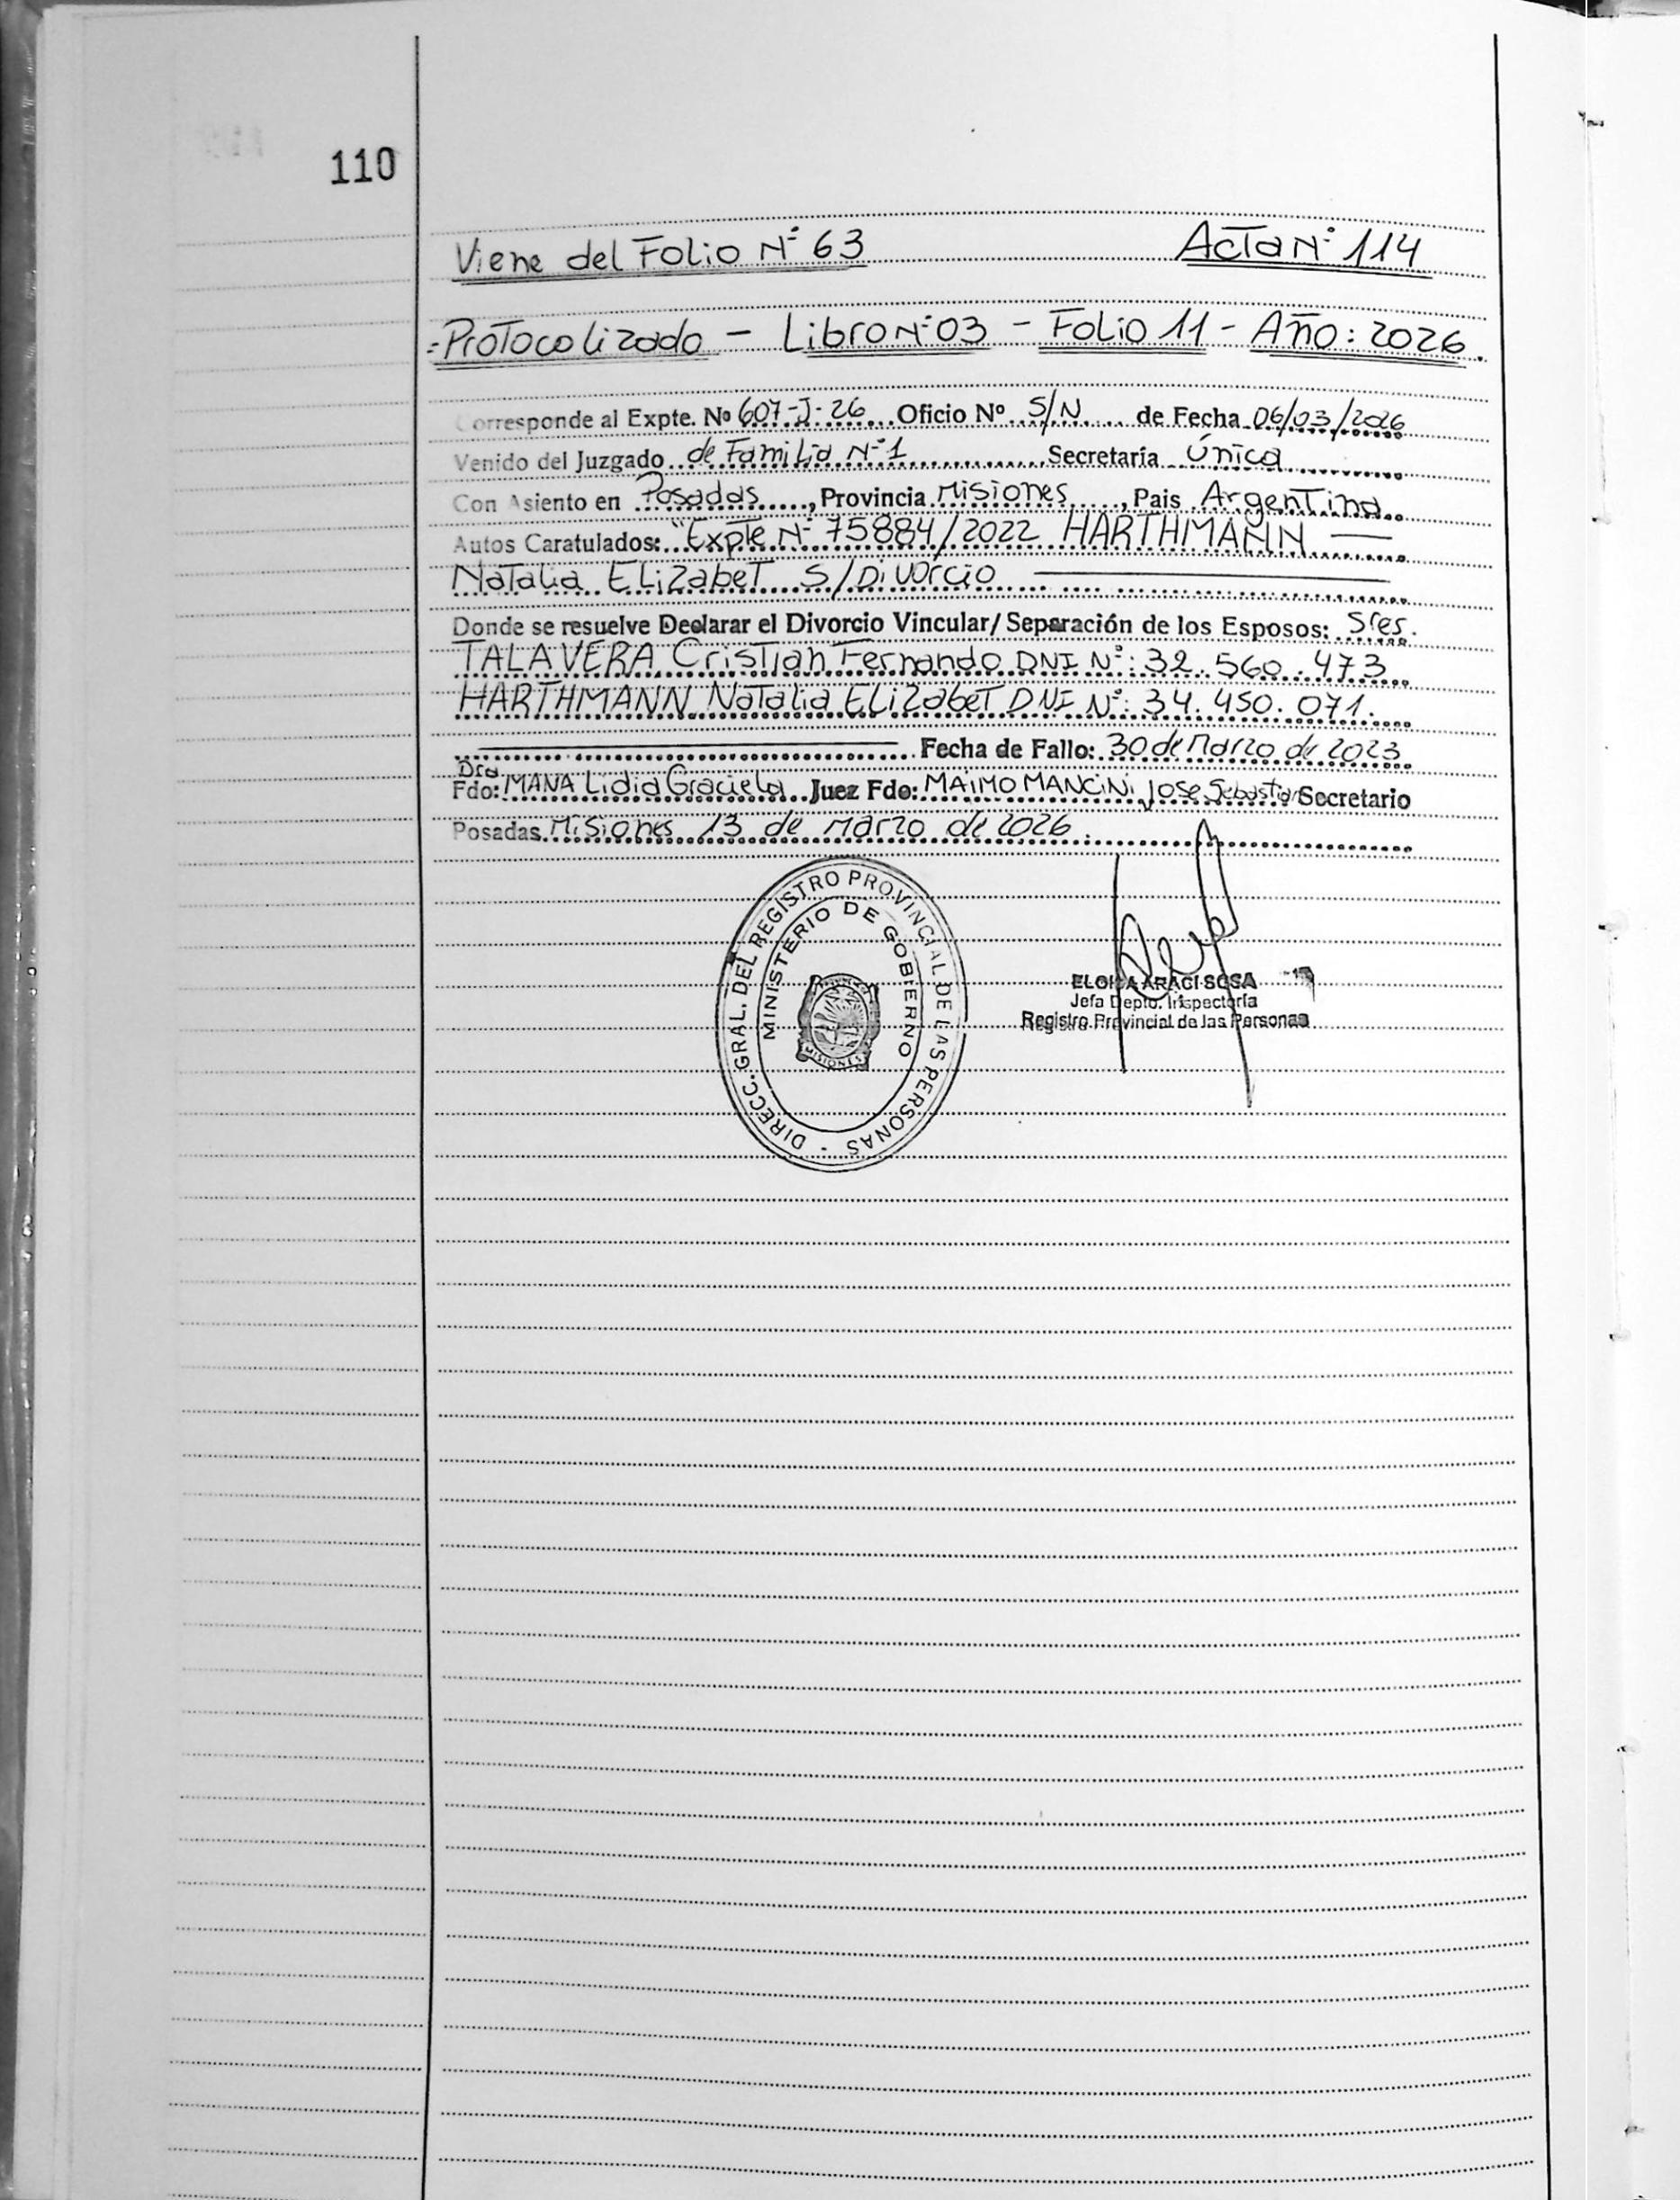 110
Viene del Folio N° 63 Acta N° 114
Protocolizado - Libro N° 03 - Folio 11 - Año: 2026.
Corresponde al Expte. Nº 607-J-26 Oficio Nº S/N de Fecha 06/03/2026
Venido del Juzgado de Familia N°1 Secretaría Única
Con Asiento en Posadas, Provincia Misiones, Pais Argentina
Autos Caratulados: "Expte N° 75884/2022 HARTHMANN —
Natalia Elizabet S/Divorcio
Donde se resuelve Declarar el Divorcio Vincular/Separación de los Esposos: Sres.
TALAVERA Cristian Fernando DNI N°: 32.560.473
HARTHMANN Natalia Elizabet DNI N°: 34.450.071.
Fecha de Fallo: 30 de Marzo de 2023
Dra
Fdo: MANA Lidia Graciela Juez Fdo: MAIMO MANCINI Jose Sebastian Secretario
Posadas Misiones 13 de Marzo de 2026.
DIRECC. GRAL. DEL REGISTRO PROVINCIAL DE LAS PERSONAS -
MINISTERIO DE GOBIERNO
MISIONES
ELOISA ARACI SOSA
Jefa Depto. Inspectoría
Registro Provincial de las Personas